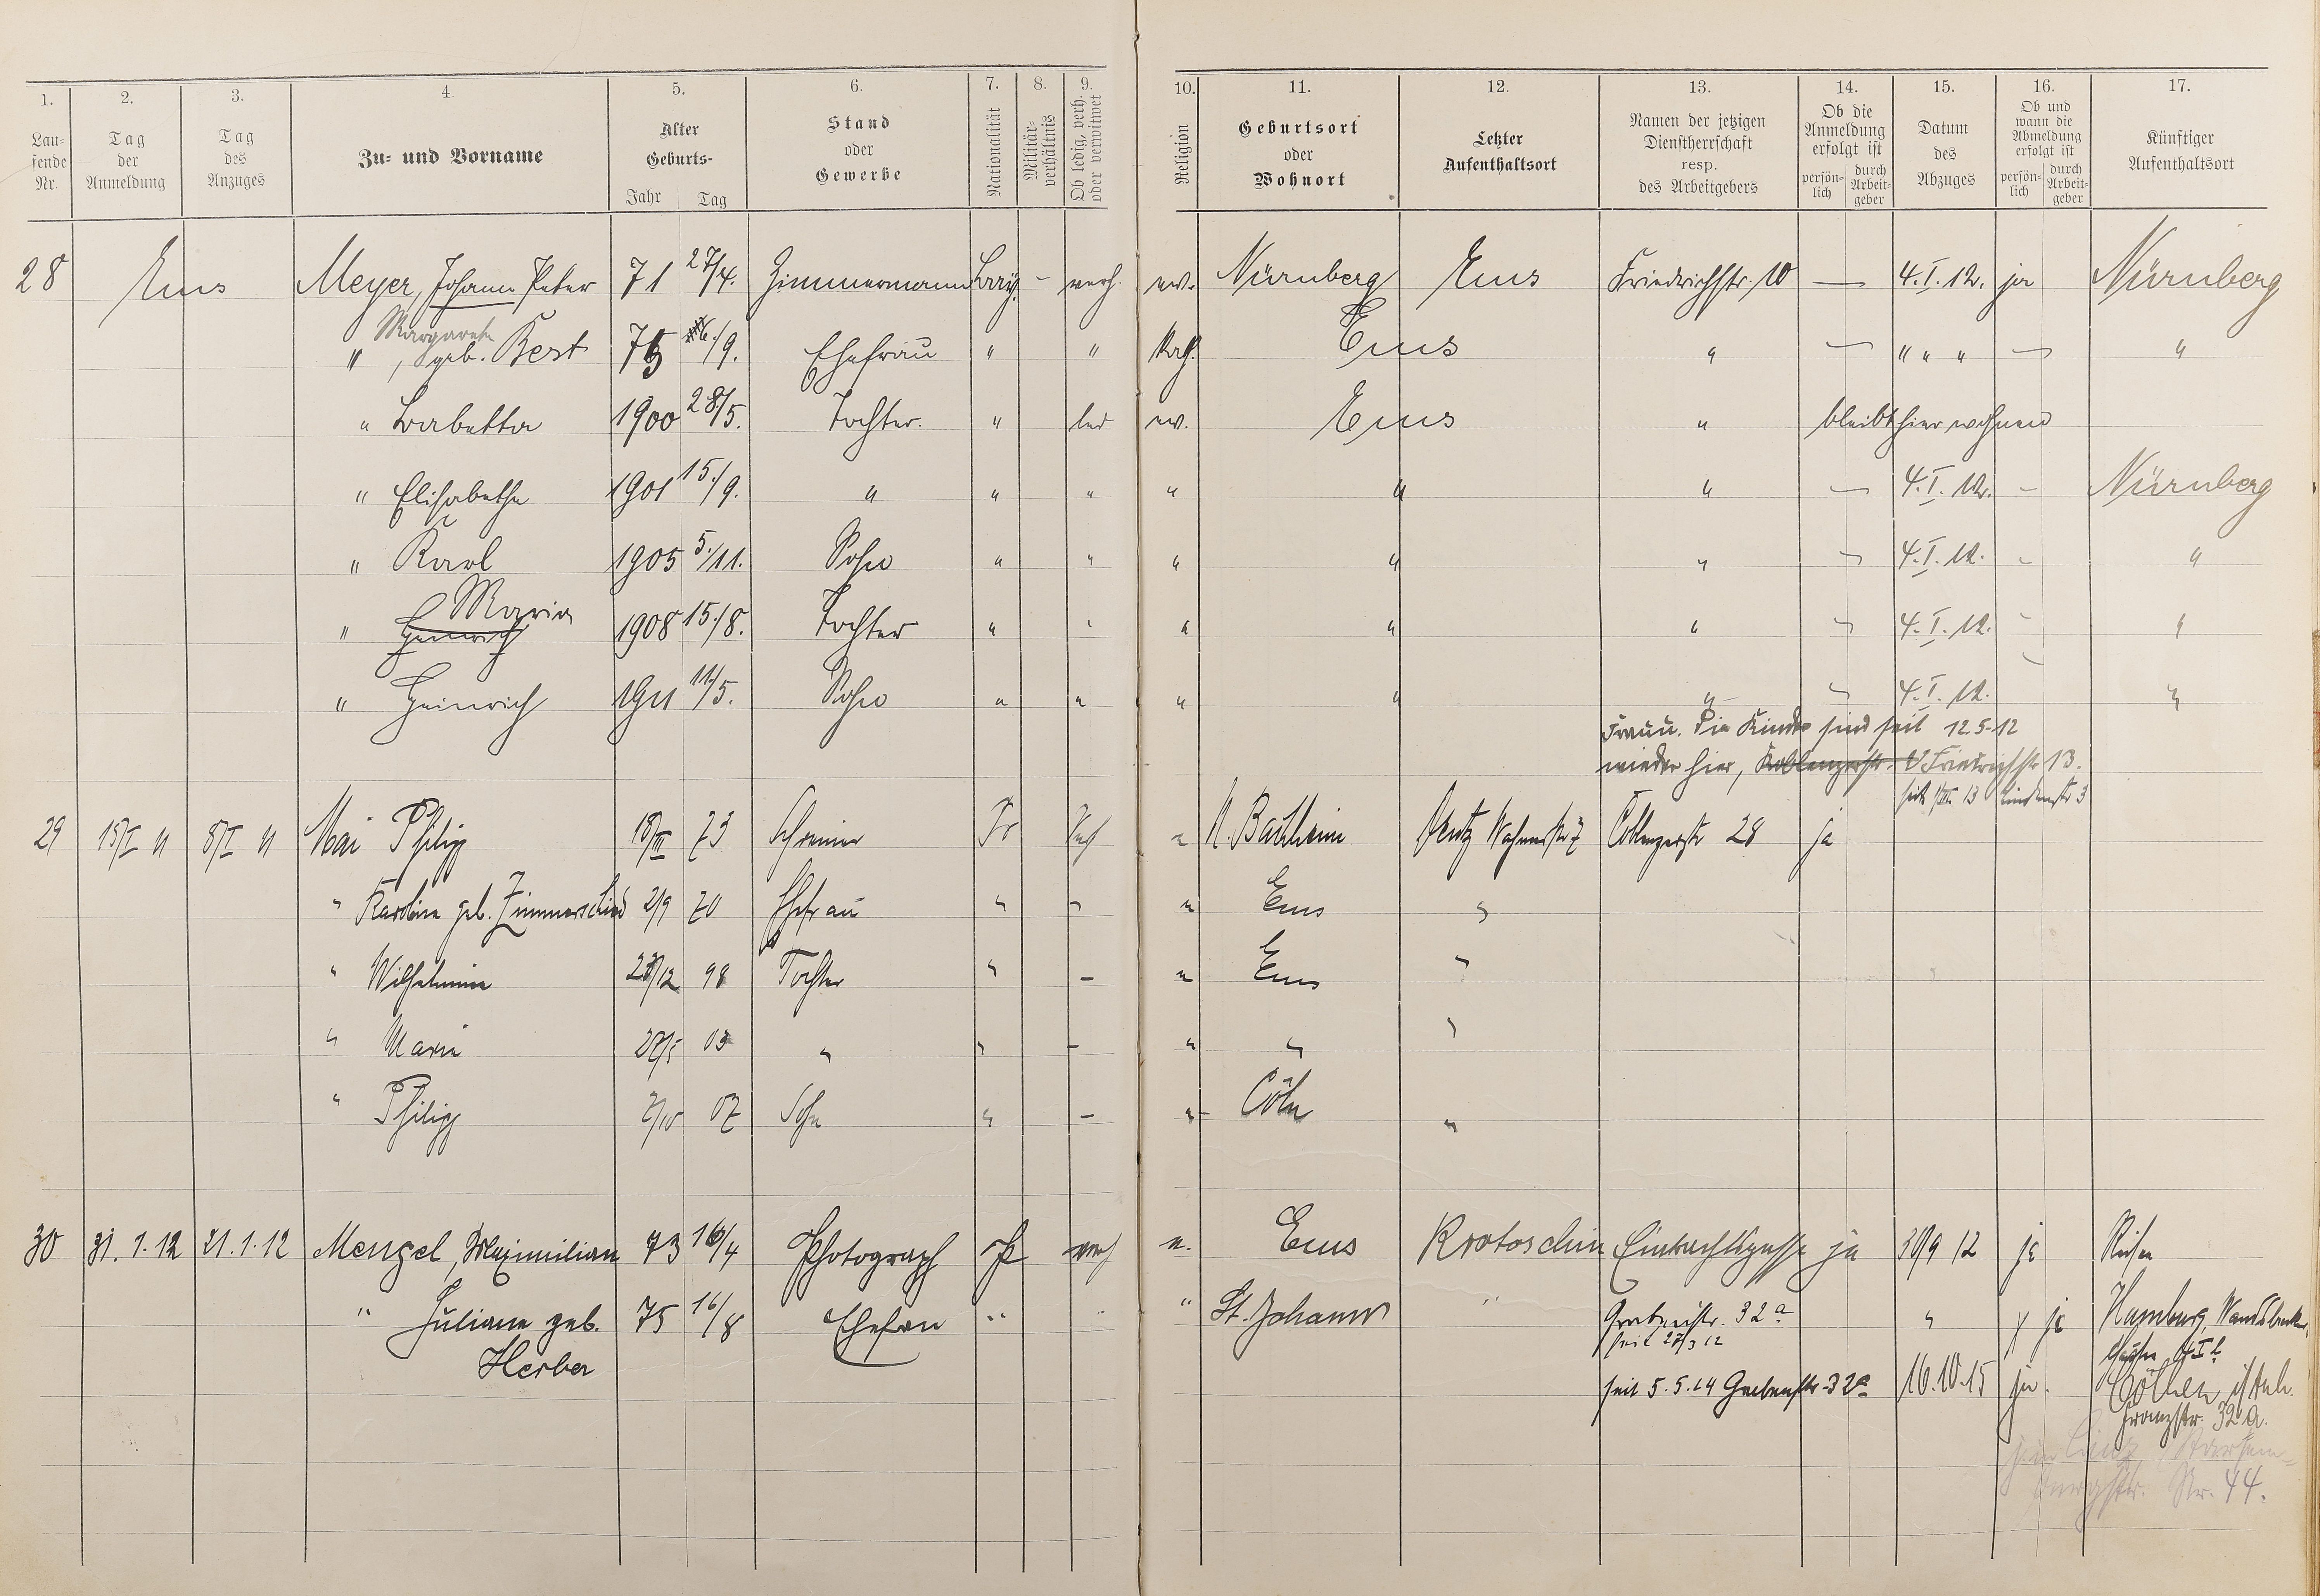 1. 2. 3. 4. 5. 6. 7. 8. 9. 10. 11. 12. 13. 14. 15. 16. 17.
Lau-
fende
Nr.
Tag
der
Anmeldung
Tag
des
Anzuges
Zu- und Vorname
Alter
Geburts-
Jahr Tag
Stand
oder
Gewerbe
Nationalität
Militär-
verhältnis
Ob ledig, verh.
oder verwitwet
Religion
Geburtsort
oder
Wohnort
Letzter
Aufenthaltsort
Namen der jetzigen
Dienstherrschaft
resp.
des Arbeitgebers
Ob die
Anmeldung
erfolgt ist
persön-
lich
durch
Arbeit-
geber
Datum
des
Abzuges
Ob und
wann die
Abmeldung
erfolgt ist
persön-
lich
durch
Arbeit-
geber
Künftiger
Aufenthaltsort
28 Ems Meyer, Johann Peter 71 27/4. Zimmermann Bay. - verh. ev. Nürnberg Ems Friedrichstr. 10 — 4.I.12. ja Nürnberg
Margarete
" , geb. Best 75 6./9. Ehefrau " " Kath. Ems " — " " " — "
" Babetta 1900 28/5. Tochter. " led ev. Ems " bleibt hier wohnen
" Elisabetha 1901 15./9. " " " " " " — 4.I.12. - Nürnberg
" Karl 1905 5./11. Sohn " " " " " - 4.I.12. - "
Maria
" Heinrich 1908 15./8. Tochter " " " " " - 4.I.12. - "
" Heinrich 1911 11/5. Sohn " " " " " - 4.I.12. "
Frau u. die Kinder sind seit 12.5.12
wieder hier, Koblenzerstr. Friedrichstr. 13.
seit 13 Lindenstr 3
29 18/I 11 8/I 11 Mai Philipp 18/III 73 Schreiner Pr Verh " N. Bachheim Coblenzerstr 28 ja
" Karoline geb. Zimmerschied 2/9 70 Ehefrau " " " Ems "
" Wilhelmine /12 98 Tochter " - " Ems "
" Marie 27/5 03 " " - " " "
" Philipp 2/10 07 Sohn " - " Cöln "
30 31.1.12 21.1.12 Menzel, Maximilian 73 16/4 Photograph P verh e. Ems Krotoschin Eintrachtgasse ja 30/9 12 ja Reisen
" Juliane geb. 75 16/8 Ehefrau " " " St. Johann " Grabenstr. 32a " ja Hamburg, Wandsbecker
Herber
seit 27/3 12
seit 5.5.14 Grabenstr. 32a 16.10.15 ja. Cöthen i/Anh.
Franzstr. 32a.
Nr. 44.